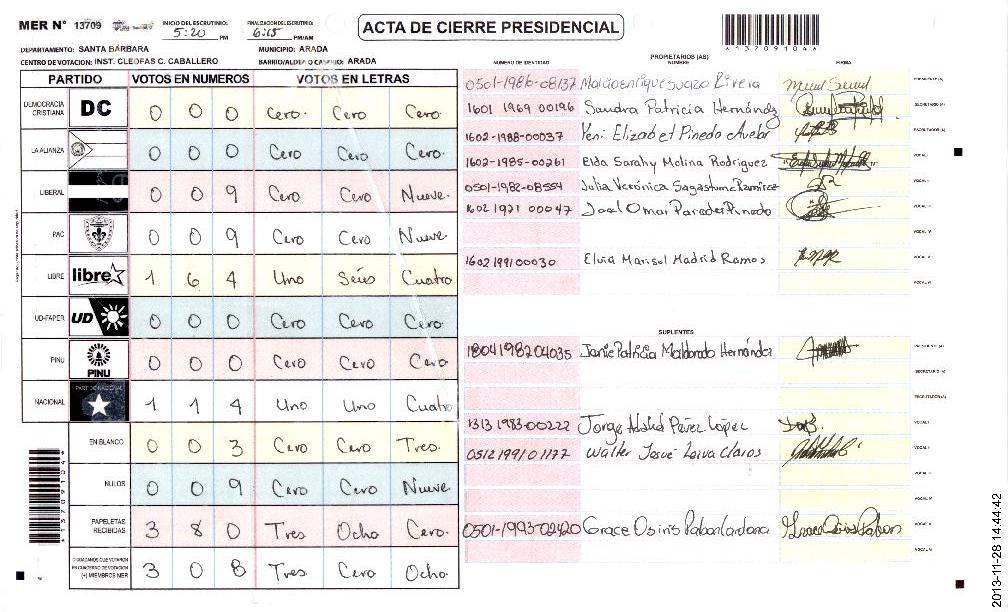 MER N° 13709 INICIO DEL ESCRUTINIO: 5:20 PM FINALIZACION DEL ESCRUTINIO: 6:15 PM/AM ACTA DE CIERRE PRESIDENCIAL
*1370910 4*
DEPARTAMENTO: SANTA BÁRBARA MUNICIPIO: ARADA
CENTRO DE VOTACION: INST. CLEOFAS C. CABALLERO BARRIO/ALDEA O CASERIO: ARADA
PROPIETARIOS (AS)
NUMERO DE IDENTIDAD NOMBRE FIRMA
PARTIDO VOTOS EN NUMEROS VOTOS EN LETRAS
DEMOCRACIA CRISTIANA DC 0 0 0 Cero. Cero Cero.
LA ALIANZA 0 0 0 Cero Cero Cero.
LIBERAL 0 0 9 Cero Cero Nueve.
PAC 0 0 9 Cero Cero Nueve.
LIBRE libre 1 6 4 Uno Seis Cuatro
UD-FAPER UD 0 0 0 Cero Cero Cero.
PINU PINU 0 0 0 Cero Cero Cero.
NACIONAL PARTIDO NACIONAL 1 1 4 Uno Uno Cuatro
EN BLANCO 0 0 3 Cero Cero Tres.
NULOS 0 0 9 Cero Cero Nueve
PAPELETAS RECIBIDAS 3 8 0 Tres Ocho Cero.
CIUDADANOS QUE VOTARON EN CUADERNO DE VOTACION (+) MIEMBROS MER 3 0 8 Tres. Cero Ocho.
0501-1986-08137 Marco enrique suazo Rivera PRESIDENTE (A)
1601 1969 00196 Sandra Patricia Hernández SECRETARIO (A)
1602-1988-00037 Yeni Elizabet Pinedo ESCRUTADOR (A)
1602-1985-00261 Elda Sarahy Molina Rodriguez VOCAL I
0501-1982-08554 Julia Verónica Sagastume Ramírez VOCAL II
1602 1971 00047 Joel Omar Paredes Pinedo VOCAL III
VOCAL IV
1602 1991 00030 Elvia Marisol Madrid Ramos VOCAL V
VOCAL VI
SUPLENTES
1804198204035 Janie Patricia Maldonado Hernández PRESIDENTE (A)
SECRETARIO (A)
ESCRUTADOR (A)
1313 1983-00222 Jorge Pérez López VOCAL I
0512 1991 01177 Walter Josué Leiva Claros VOCAL II
VOCAL III
VOCAL IV
0501-1993-02420 Grace Osiris Pabon Cardona VOCAL V
VOCAL VI
2013-11-28 14:44:42